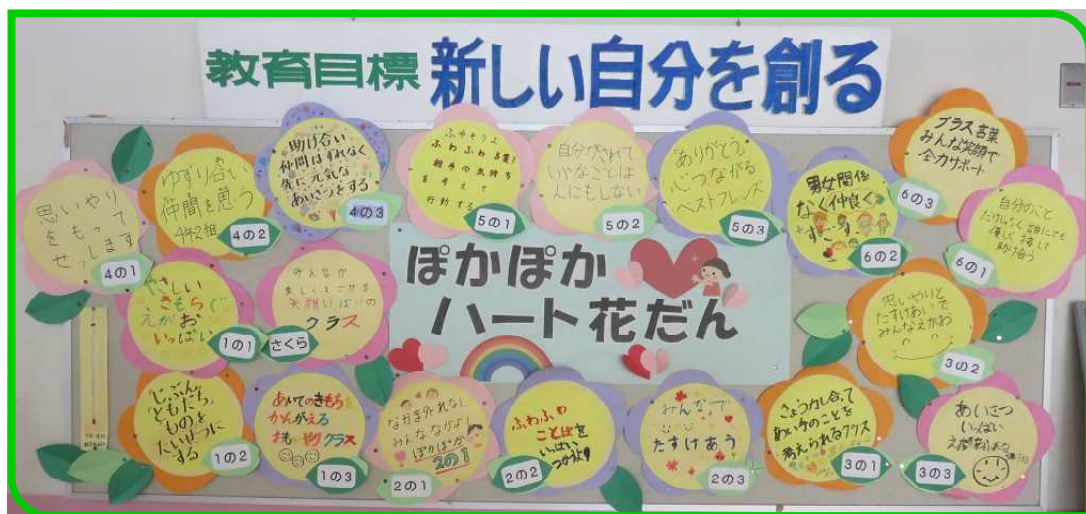 教育目標 新しい自分を創る
思いやり
をもって
せっします
4の1
ゆずり合い
仲間を思う
4年2組
4の2
助け合い
仲間はずれなく
先に元気な
あいさつをする
4の3
ふやそうよ
ふわふわ言葉を
相手の気持ち
を考えて
行動する
5の1
自分がされて
いやなことは
人にもしない
5の2
ありがとう
心つながる
ベストフレンズ
5の3
男女関係
なく仲良く
6の2
プラス言葉
みんな笑顔で
全力サポート
6の3
自分のこと
誰にでも
優しく接して
助け合う
6の1
やさしい
きもちで
えがお
いっぱい
1の1
みんなが
笑顔いっぱいの
クラス
さくら
ぽかぽか
ハート花だん
思いやりと
たすけあいで
みんなえがお
3の2
じぶん
ともだち
ものを
たいせつに
する
1の2
あいてのきもちを
かんがえる
おもいやりクラス
1の3
なかま外れなし
みんななかよし
ぽかぽか
2の1
2の1
ふわふわ
ことばを
いっぱい
つかうよ
2の2
みんなで
たすけあう
2の3
きょう力し合って
あい手のことを
考えられるクラス
3の1
あいさつ
いっぱい
3の3